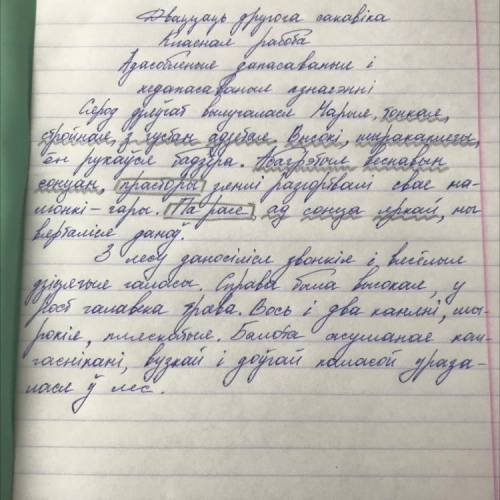 Дваццаць другога сакавіка
Класная работа
Адасобленыя дапасаваныя і
недапасаваныя азначэнні
Сярод дзяўчат вылучалася Марыля, тонкая,
стройная, з густам адзетая. Высокі, шыракаплечы,
ён рухаўся бадзёра. Абагрэтыя веснавым
сонцам, прасторы зямлі разгортвалі свае ма-
люнкі-гары. Па расе, ад сонца яркай, мы
вярталіся дамоў.
З лесу даносіліся звонкія і вясёлыя
дзіцячыя галасы. Справа была высокая, у
рост чалавека трава. Вось і два камяні, шы-
рокія, пляскатыя. Балота асушанае кан-
паснікамі, вузкай і доўгай паласой урэза-
лася ў лес.